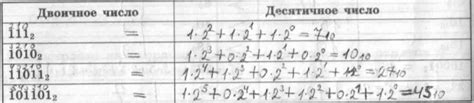 Двоичное число Десятичное число
111₂ = 1·2²+1·2¹+1·2⁰=7₁₀
1010₂ = 1·2³+0·2²+1·2¹+0·2⁰=10₁₀
11011₂ = 1·2⁴+1·2³+0·2²+1·2¹+1·2⁰=27₁₀
101101₂ = 1·2⁵+0·2⁴+1·2³+1·2²+0·2¹+1·2⁰=45₁₀